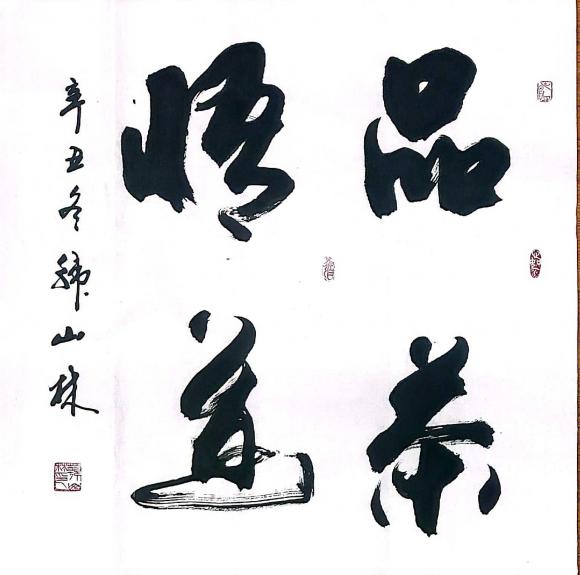 品茶
悟道
辛丑冬韩山林